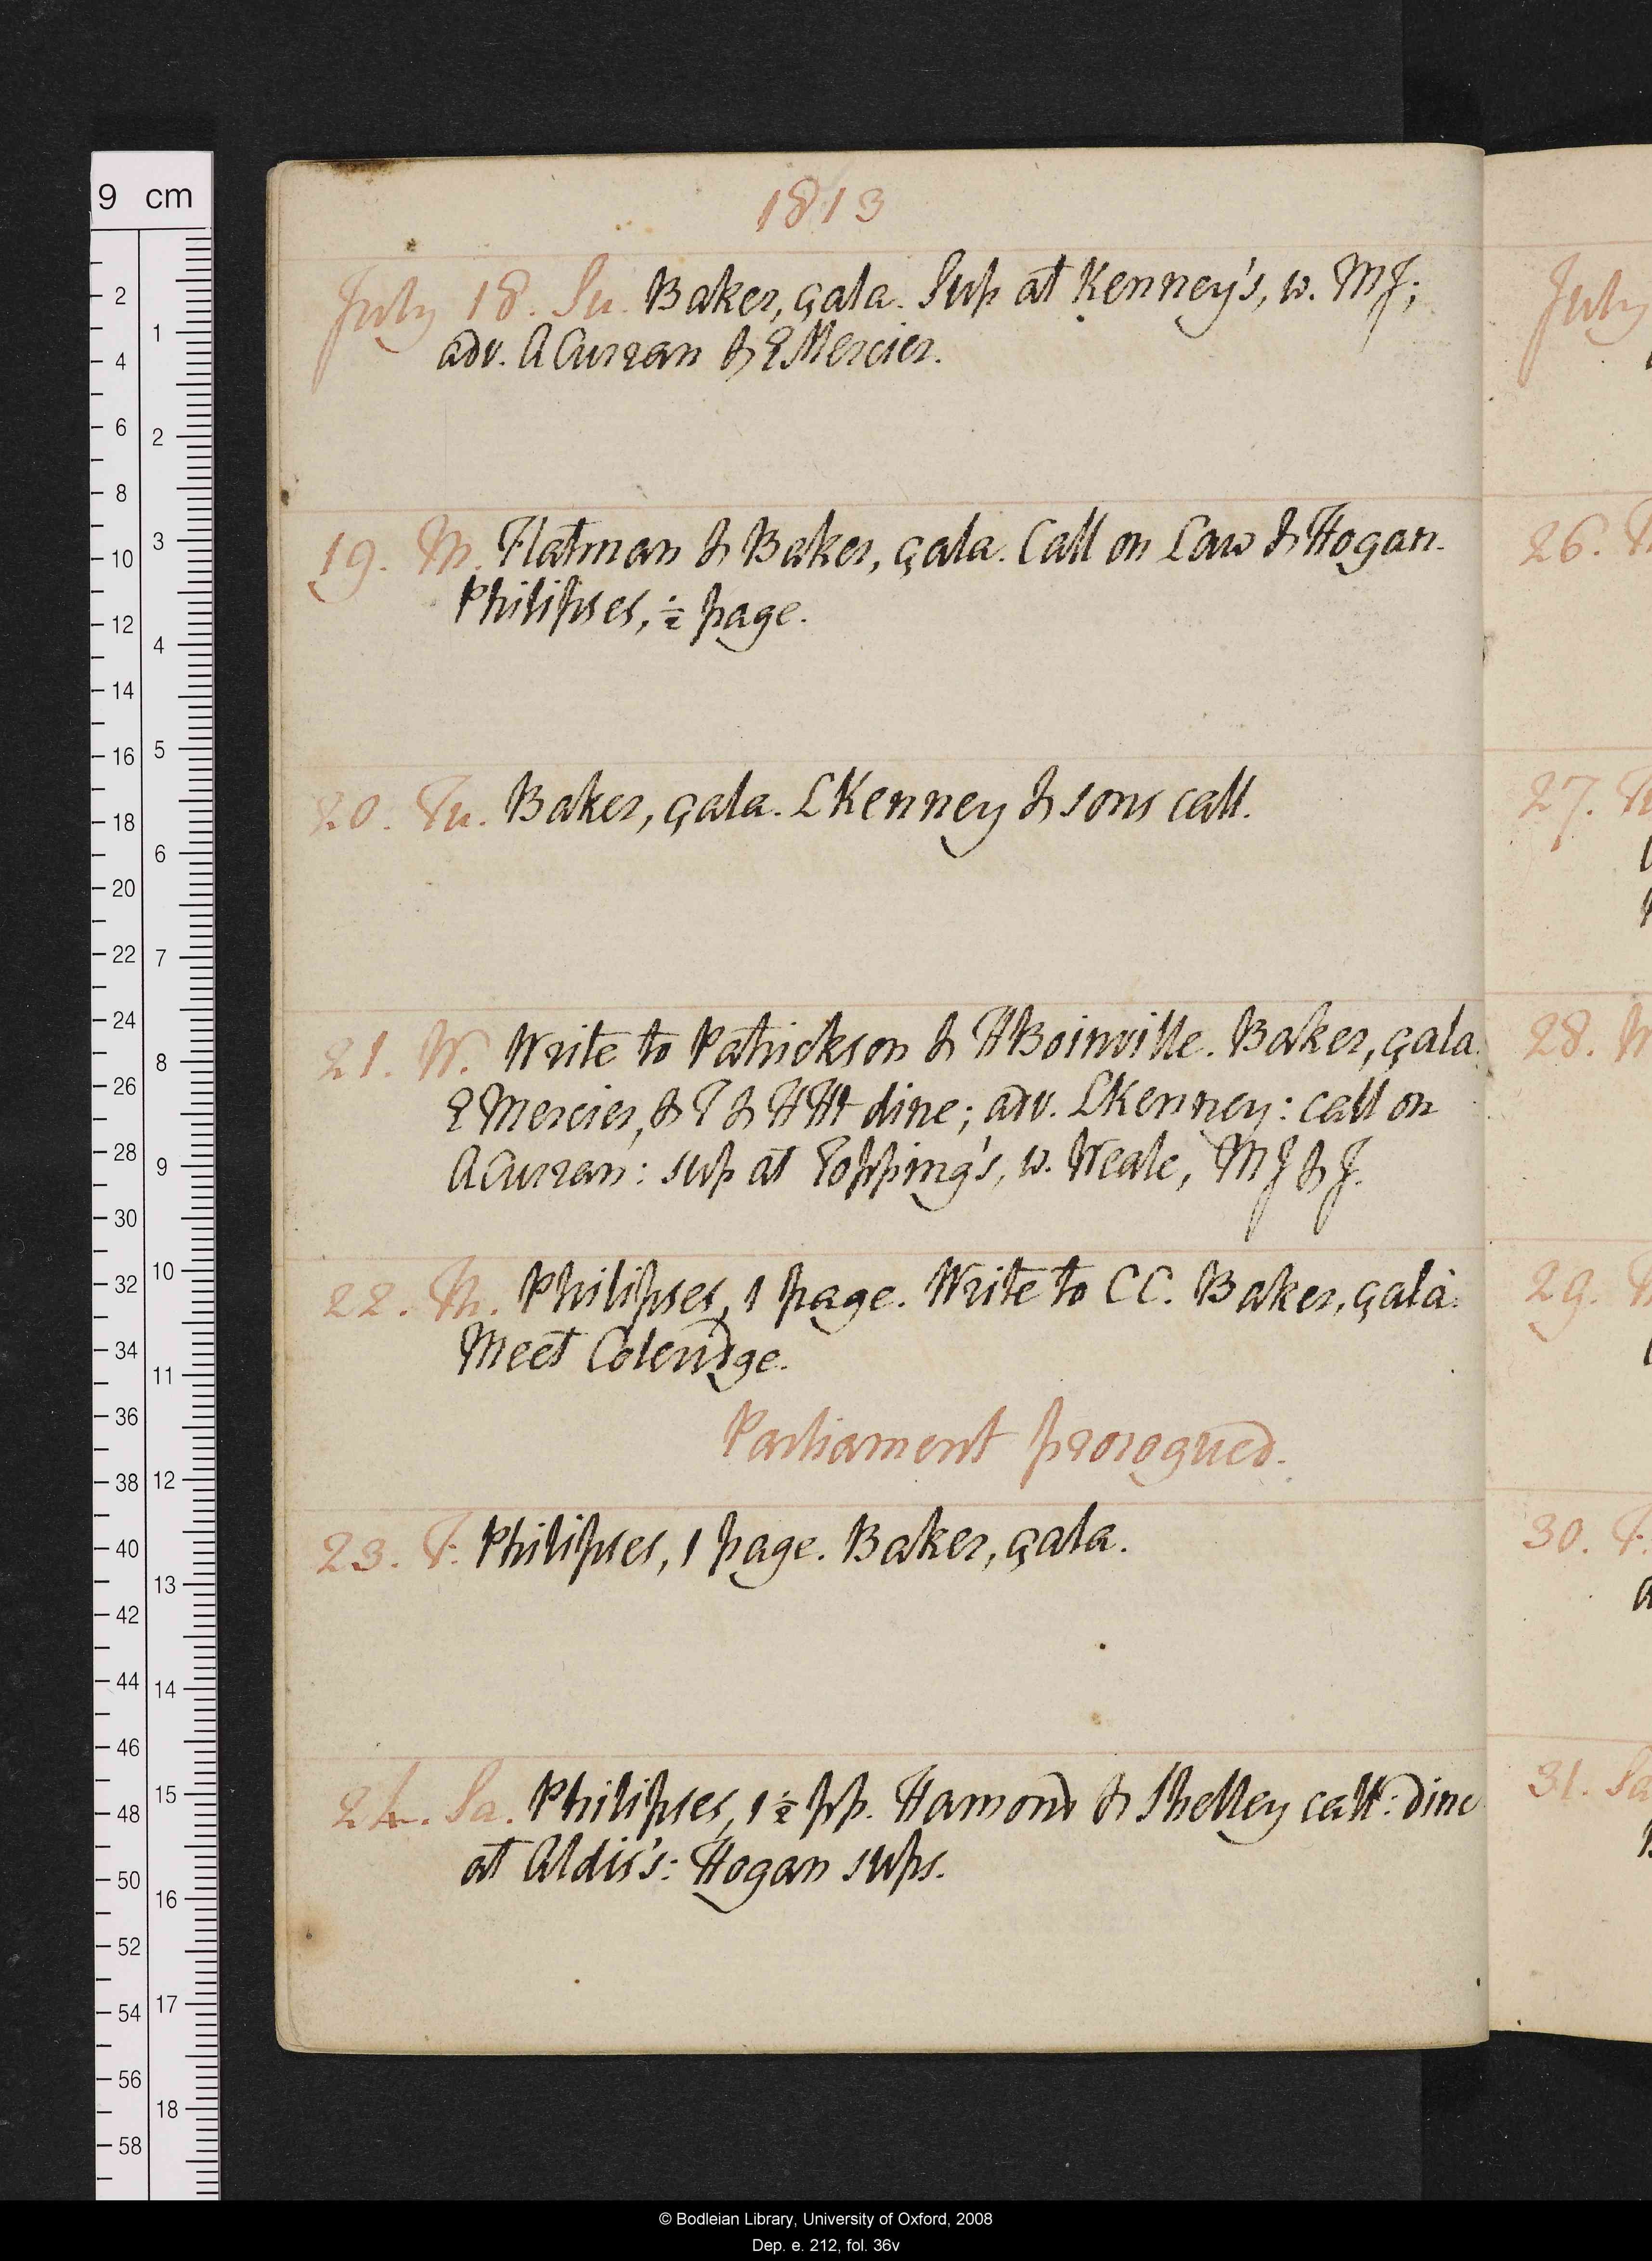 1813
July 18. Su. Baker, çala. Sup at Kenney's, w. MJ;
adv. A Curran & E Mercier.
19. M. Flatman & Baker, çala. Call on Law & Hogan.
Philipses, ½ page.
20. Tu. Baker, çala. L Kenney & sons call.
21. W. Write to Patrickson & H Boinville. Baker, çala.
E Mercier, & T & H Ht dine; adv. L Kenney: call on
A Curran: sup at Topping's, w. Neale, MJ & J.
22. Th. Philipses, 1 page. Write to CC. Baker, çala.
Meet Coleridge.
Parliament prorogued.
23. F. Philipses, 1 page. Baker, çala.
24. Sa. Philipses, 1½ pp. Hamond & Shelley call: dine
at Aldis's: Hogan sups.
July
26.
27.
28. W
29.
30. F.
31. Sa
9 cm
2
4
6
8
10
12
14
16
18
20
22
24
26
28
30
32
34
36
38
40
42
44
46
48
50
52
54
56
58
1
2
3
4
5
6
7
8
9
10
11
12
13
14
15
16
17
18
© Bodleian Library, University of Oxford, 2008
Dep. e. 212, fol. 36v